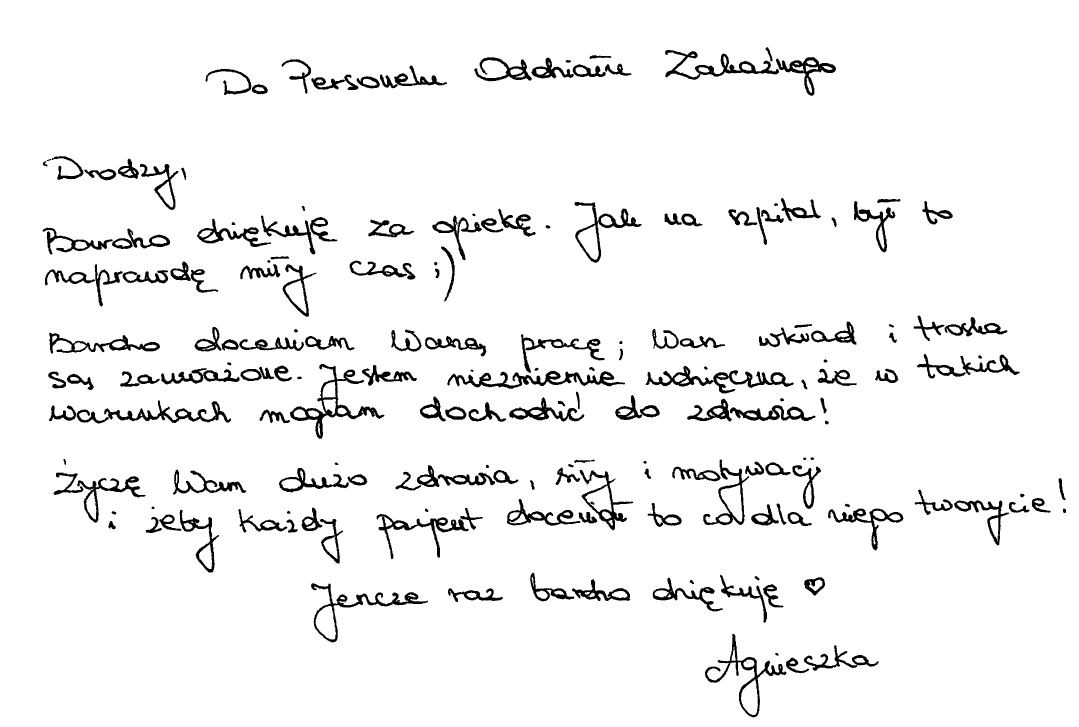 Do Personelu Oddziału Zakaźnego
Drodzy,
Bardzo dziękuję za opiekę. Jak na szpital, był to
naprawdę miły czas ;)
Bardzo doceniam Waszą pracę; Wasz wkład i troska
są zauważone. Jestem niezmiernie wdzięczna, że w takich
warunkach mogłam dochodzić do zdrowia!
Życzę Wam dużo zdrowia, siły i motywacji
i żeby każdy pacjent doceniał to co dla niego tworzycie!
Jeszcze raz bardzo dziękuję ♡
Agnieszka